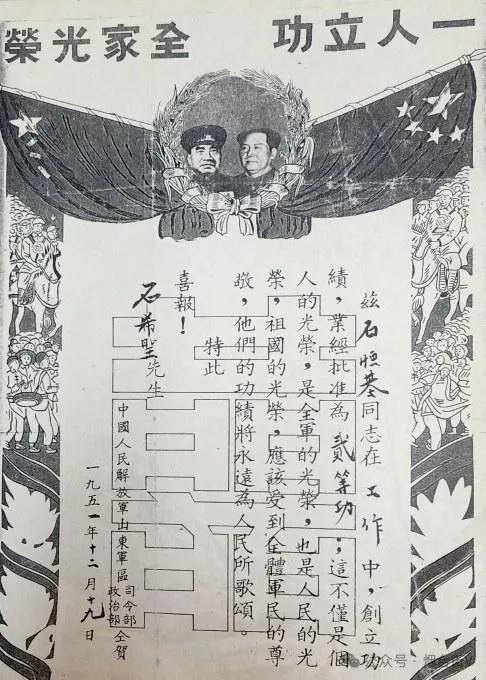 一人立功 全家光榮
茲石恒基同志在工作中，創立功
績，業經批准為貳等功；這不僅是個
人的光榮，是全軍的光榮，也是人民的光
榮，祖國的光榮，應該受到全體軍民的尊
敬，他們的功績將永遠為人民所歌頌。
特此
喜報！
石希聖先生
中國人民解放軍山東軍區司令部政治部仝賀
一九五一年十二月十九日
公众号·烟台